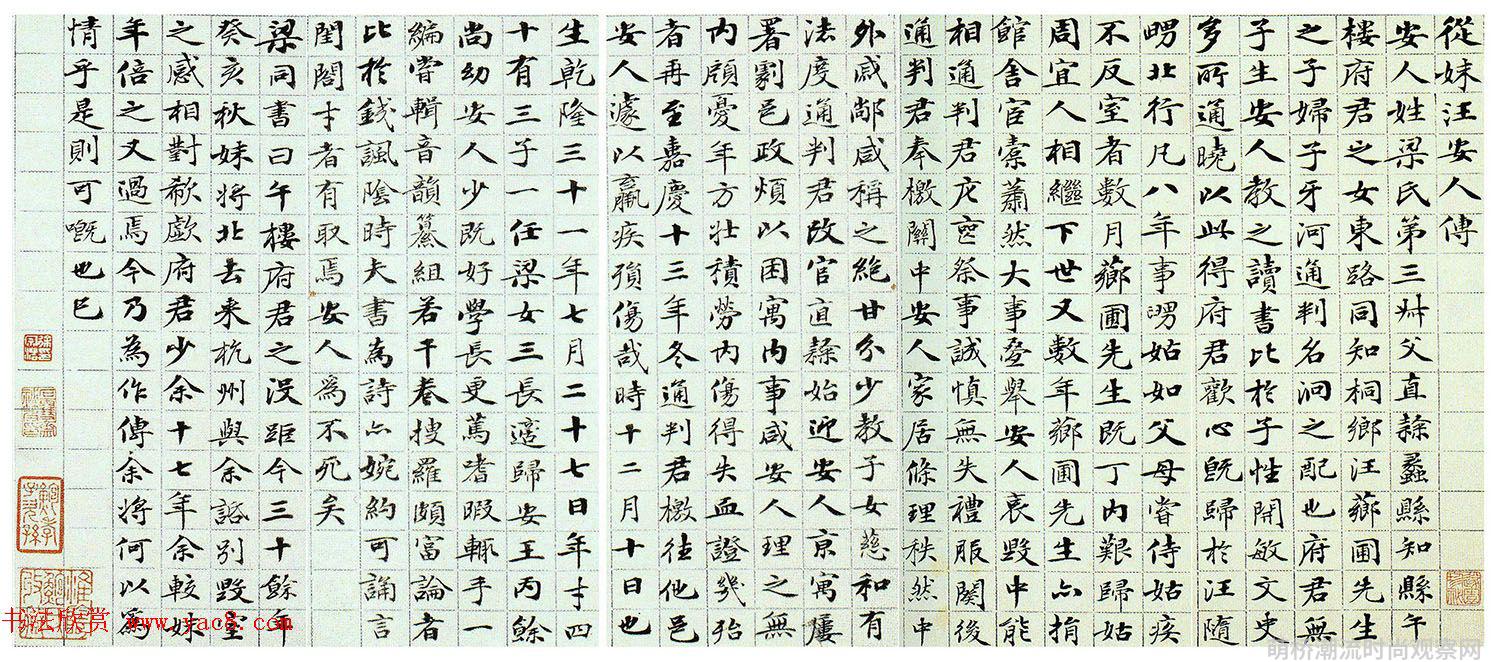 從妹汪安人傳
安人姓梁氏第三叔父直隸蠡縣知縣午
樓府君之女東路同知桐鄉汪薌圃先生
之子婦子牙河通判名泂之配也府君無
子生安人教之讀書比於子性開敏文史
多所通曉以此得府君歡心既歸於汪隨
甥北行凡八年事
姑如父母嘗侍姑疾
不反室者數月薌圃先生既丁內艱歸姑
周宜人相繼下世又數年薌圃先生亦捐
館舍宦橐蕭然大事壘舉安人哀毀中能
相通判君庀
祭事誠慎無失禮服闋後
通判君奉檄關中安人家居條理秩然中
外戚鄰咸稱之絕甘分少教子女慈和有
法度通判君改官直隸始迎安人京寓屢
署劇邑政煩以困寓內事咸安人理之無
內顧憂年方壯積勞內傷得失血證幾殆
者再至嘉慶十三年冬通判君檄往他邑
安人遽以羸疾殞傷哉時十二月十日也
生乾隆三十一年七月二十七日年才四
十有三子一任梁女三長適歸安王丙餘
尚幼安人少既好學長更篤嗜暇輒手一
編嘗輯音韻纂組若干卷搜羅頗富論者
比於錢諷陰時夫書為詩亦婉約可誦言
閨閤才者有取焉安人為不死矣
梁同書曰午樓府君之沒距今三十餘年
癸亥秋妹將北去來杭州與余話別毀室
之感相對欷歔府君少余十七年余較妹
年倍之又過焉今乃為作傳余將何以為
情乎是則可嘅也已
书法欣赏 www.yac8.com
萌桥潮流时尚观察网